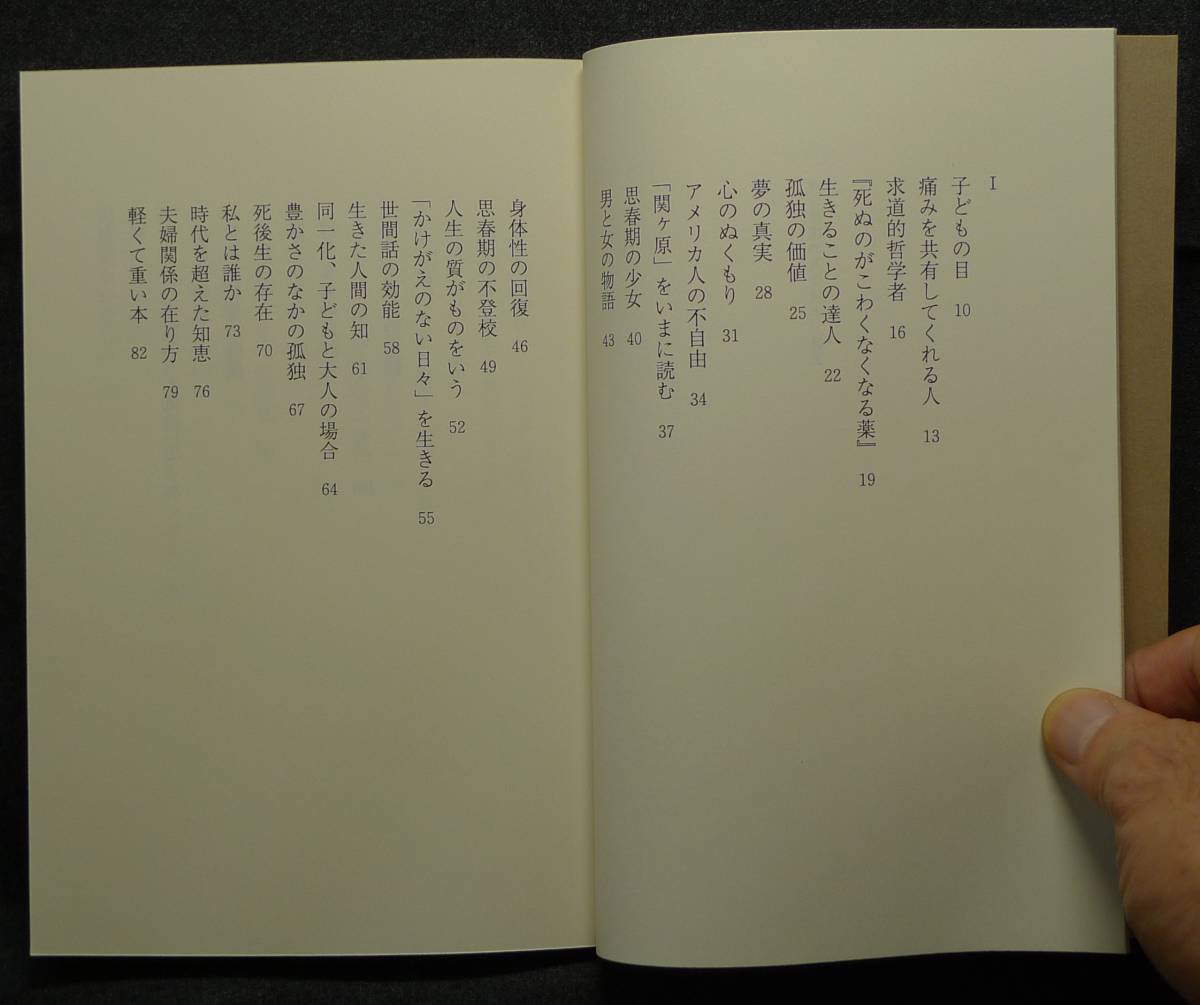 I
子どもの目 10
痛みを共有してくれる人 13
求道的哲学者 16
『死ぬのがこわくなくなる薬』 19
生きることの達人 22
孤独の価値 25
夢の真実 28
心のぬくもり 31
アメリカ人の不自由 34
「関ヶ原」をいまに読む 37
思春期の少女 40
男と女の物語 43
身体性の回復 46
思春期の不登校 49
人生の質がものをいう 52
「かけがえのない日々」を生きる 55
世間話の効能 58
生きた人間の知 61
同一化、子どもと大人の場合 64
豊かさのなかの孤独 67
死後生の存在 70
私とは誰か 73
時代を超えた知恵 76
夫婦関係の在り方 79
軽くて重い本 82